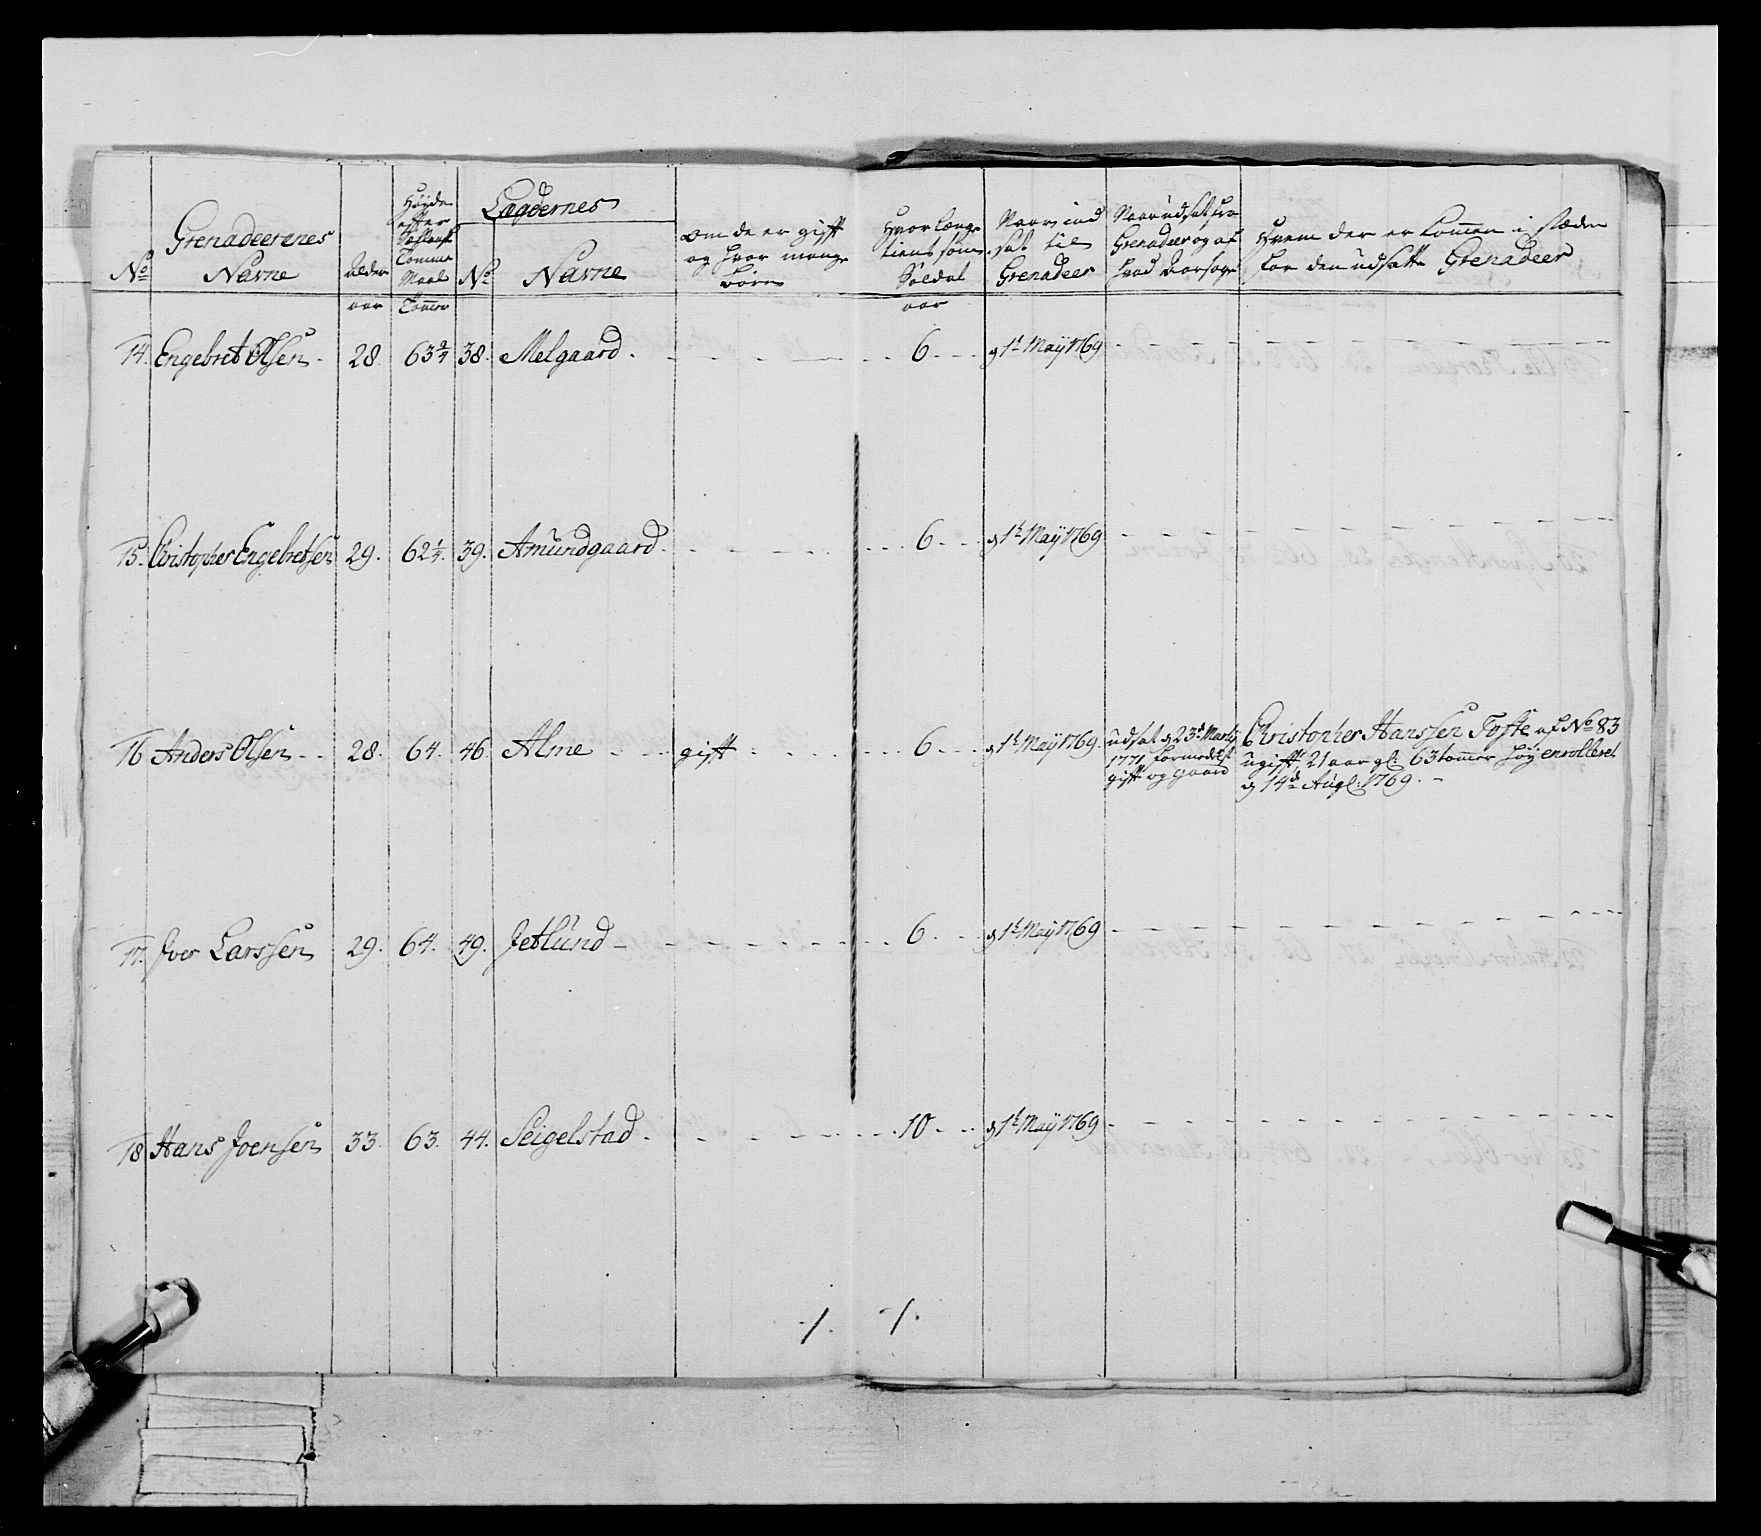 No
Grenadeerenes
Navne
Alder
aar
Høyde
efter
Tomme
Maal
Tommer
Lægdernes
No
Navne
om de er gift
og hvor mange
børn
Hvor længe
tient som
Soldat
aar
Naar ind
sat til
Grenadeer
Naar udsat fra
Grenadeer og af
hvad Aarsage
Hvem der er kommen i stæden
for den udsatte Grenadeer
14. Engebret Olsen. 28. 63 3/4 38. Melgaard. 6 d 1t Maÿ 1769
15. Christopher Engebretsen 29. 62 1/4 39. Amundgaard. 6 d 1t Maÿ 1769
16 Anders Olsen 28. 64. 46. Alme gift 6 d 1t Maÿ 1769.
udsat d 23d Martÿ
1771 formedelst
gift og gaard
Christopher Hanssen Tofte af No 83
ugift, 21 aar gl. 63 tommer høy enrolleret
d 14de Augl. 1769.
17. Iver Larssen 29. 64. 49. Jetlund 6 d 1t Maÿ 1769
18 Hans Joensen 33. 63. 44. Seigelstad. 10 d 1t Maÿ 1769
./. ./.